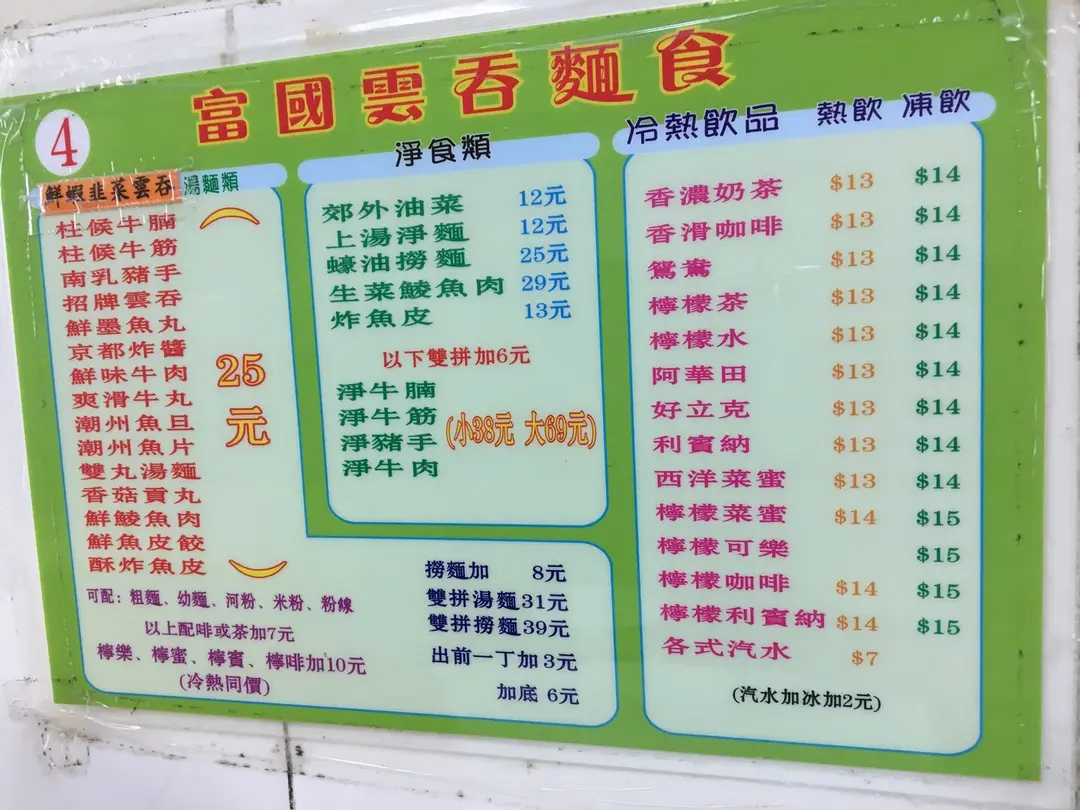 富國雲吞麵食
4
鮮蝦韭菜雲吞 湯麵類
柱候牛腩
柱候牛筋
南乳豬手
招牌雲吞
鮮墨魚丸
京都炸醬
鮮味牛肉
爽滑牛丸
潮州魚旦
潮州魚片
雙丸湯麵
香菇貢丸
鮮鯪魚肉
鮮魚皮餃
酥炸魚皮
25
元
可配：粗麵、幼麵、河粉、米粉、粉線
以上配啡或茶加7元
檸樂、檸蜜、檸賓、檸啡加10元
(冷熱同價)
淨食類
郊外油菜 12元
上湯淨麵 12元
蠔油撈麵 25元
生菜鯪魚肉 29元
炸魚皮 13元
以下雙拼加6元
淨牛腩
淨牛筋
淨豬手
淨牛肉
(小38元 大69元)
撈麵加 8元
雙拼湯麵31元
雙拼撈麵39元
出前一丁加3元
加底 6元
冷熱飲品 熱飲 凍飲
香濃奶茶 $13 $14
香滑咖啡 $13 $14
鴛鴦 $13 $14
檸檬茶 $13 $14
檸檬水 $13 $14
阿華田 $13 $14
好立克 $13 $14
利賓納 $13 $14
西洋菜蜜 $13 $14
檸檬菜蜜 $14 $15
檸檬可樂 $15
檸檬咖啡 $14 $15
檸檬利賓納 $14 $15
各式汽水 $7
(汽水加冰加2元)